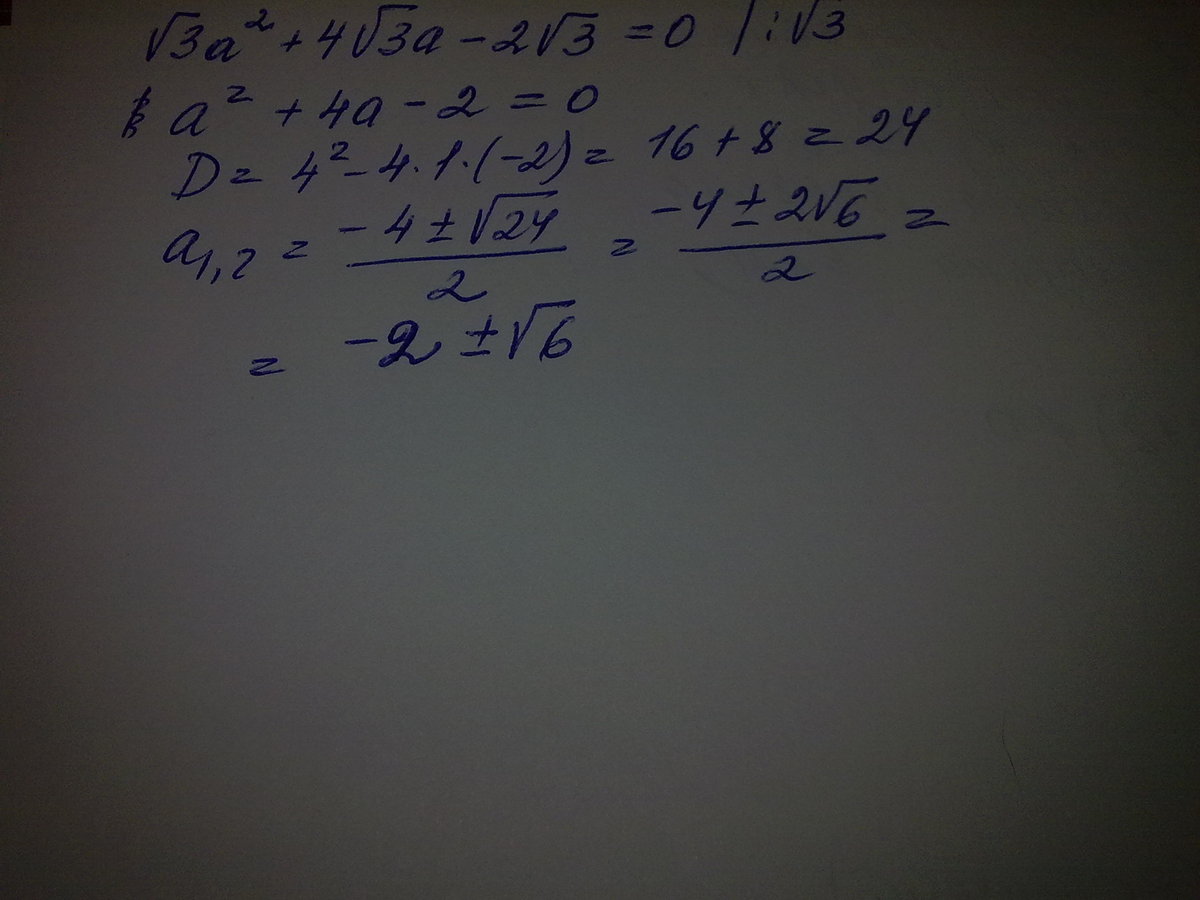 √3a² + 4√3a − 2√3 = 0 / : √3
a² + 4a − 2 = 0
D = 4² − 4 · 1 · (−2) = 16 + 8 = 24
a₁,₂ = (−4 ± √24)/2 = (−4 ± 2√6)/2 =
= −2 ± √6